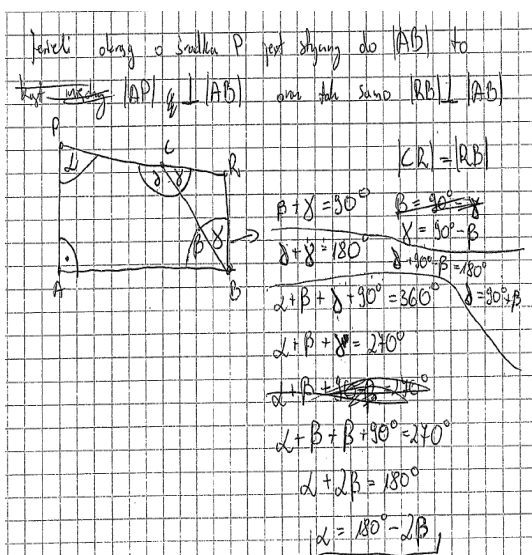 Jeżeli okrąg o środku P jest styczny do |AB| to
|AP| ⊥ |AB| oraz tak samo |RB| ⊥ |AB|
P
C
R
α
δ γ
β γ
A
B
|CR| = |RB|
β + γ = 90°
β = 90° = γ
γ = 90° - β
δ + γ = 180°
δ + 90° - β = 180°
α + β + δ + 90° = 360°
δ = 90° + β
α + β + δ = 270°
α + β + 90° - β = 270°
α + β + β + 90° = 270°
α + 2β = 180°
α = 180° - 2β